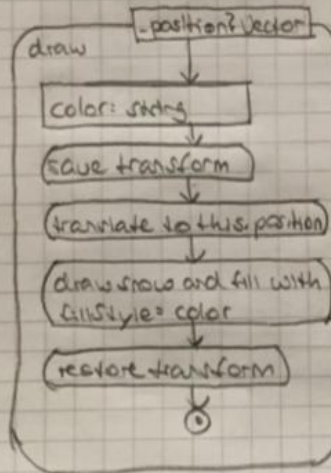 -position: Vector
draw
color: string
save transform
translate to this.position
draw snow and fill with
fillStyle = color
restore transform